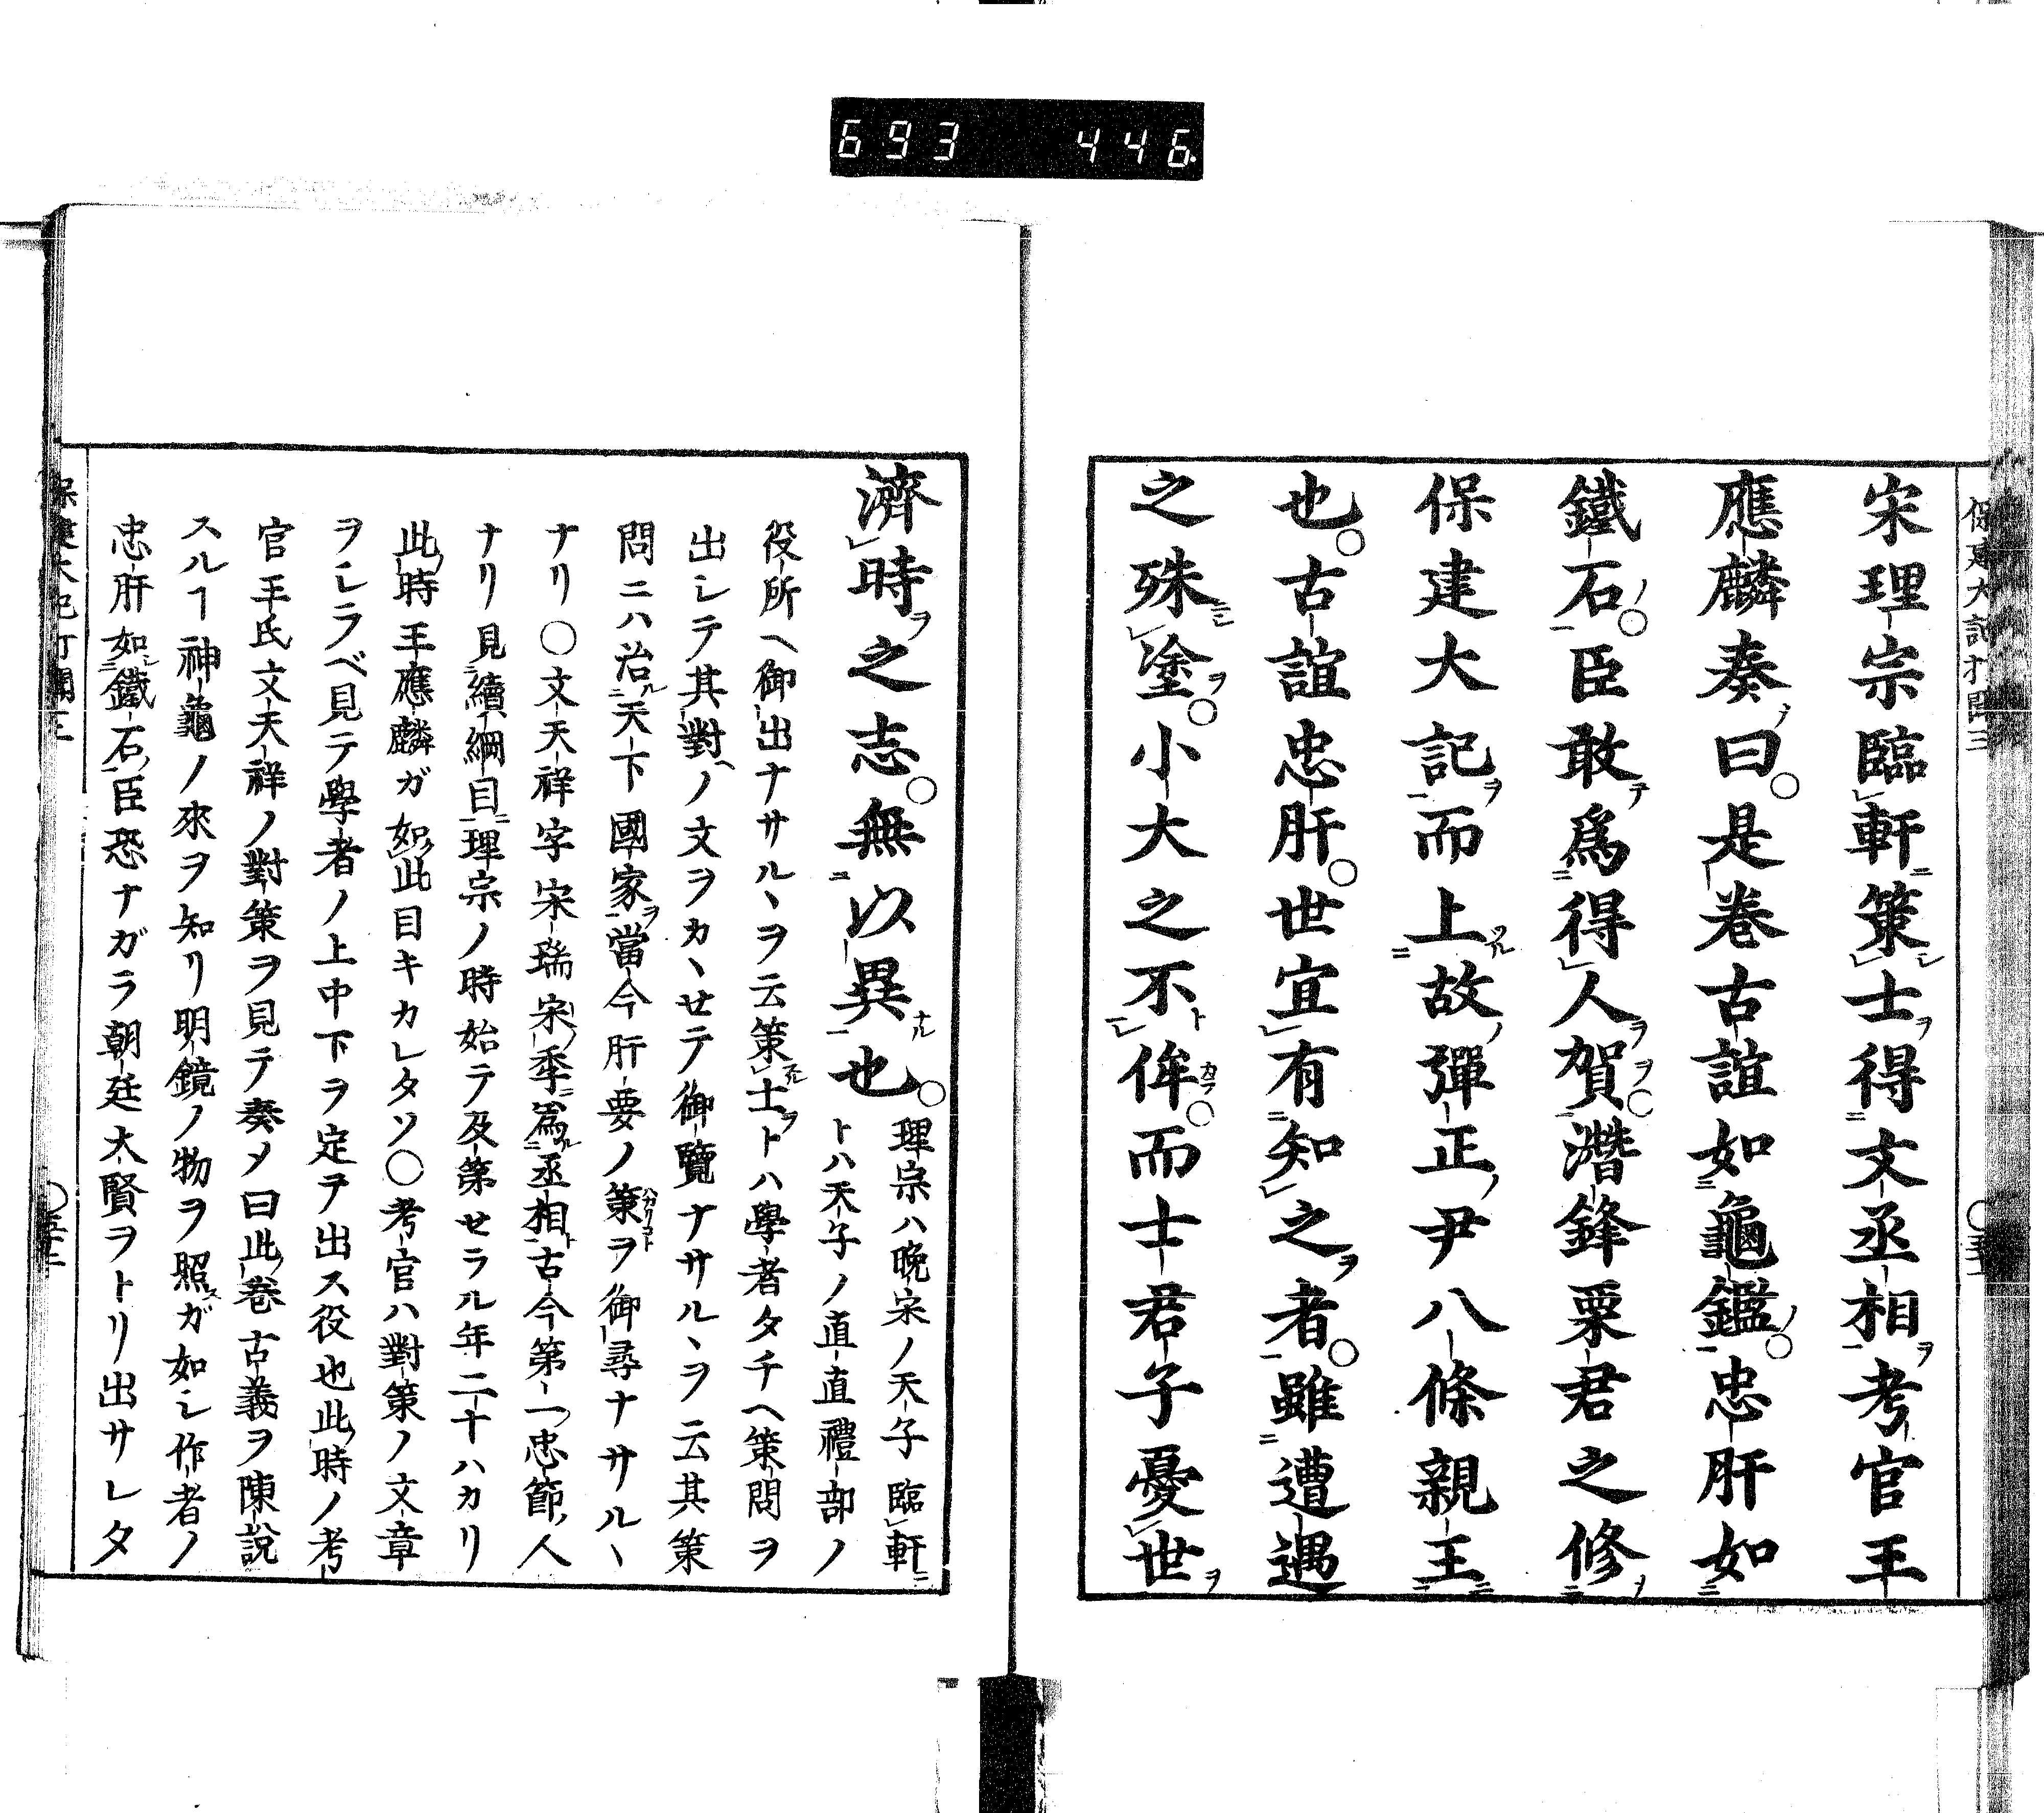 693 446
保建大記打聞三
宋理宗臨軒策士得文丞相考官王
應麟奏曰是卷古誼如龜鑑忠肝如
鐵石臣敢爲得人賀潛鋒栗君之修
保建大記而上故彈正尹八條親王
也古誼忠肝世宜有知之者雖遭遇
之殊塗小大之不侔而士君子憂世
濟時之志無以異也理宗ハ晩宋ノ天子臨軒
トハ天子ノ直直禮部ノ
役所ヘ御出ナサルヽヲ云策士トハ學者タチヘ策問ヲ
出シテ其對ノ文ヲカヽせテ御覽ナサルヽヲ云其策
問ニハ治天下國家當今肝要ノ策ヲ御尋ナサルヽ
ナリ○文天祥字宋瑞宋季爲丞相古今第一忠節人
ナリ見續綱目理宗ノ時始テ及第せラル年二十ハカリ
此時王應麟ガ如此目キカレタソ○考官ハ對策ノ文章
ヲシラベ見テ學者ノ上中下ヲ定テ出ス役也此時ノ考
官王氏文天祥ノ對策ヲ見テ奏メ曰此卷古義ヲ陳說
スルヿ神龜ノ來ヲ知リ明鏡ノ物ヲ照ガ如シ作者ノ
忠肝如鐵石臣恐ナガラ朝廷大賢ヲトリ出サレタ